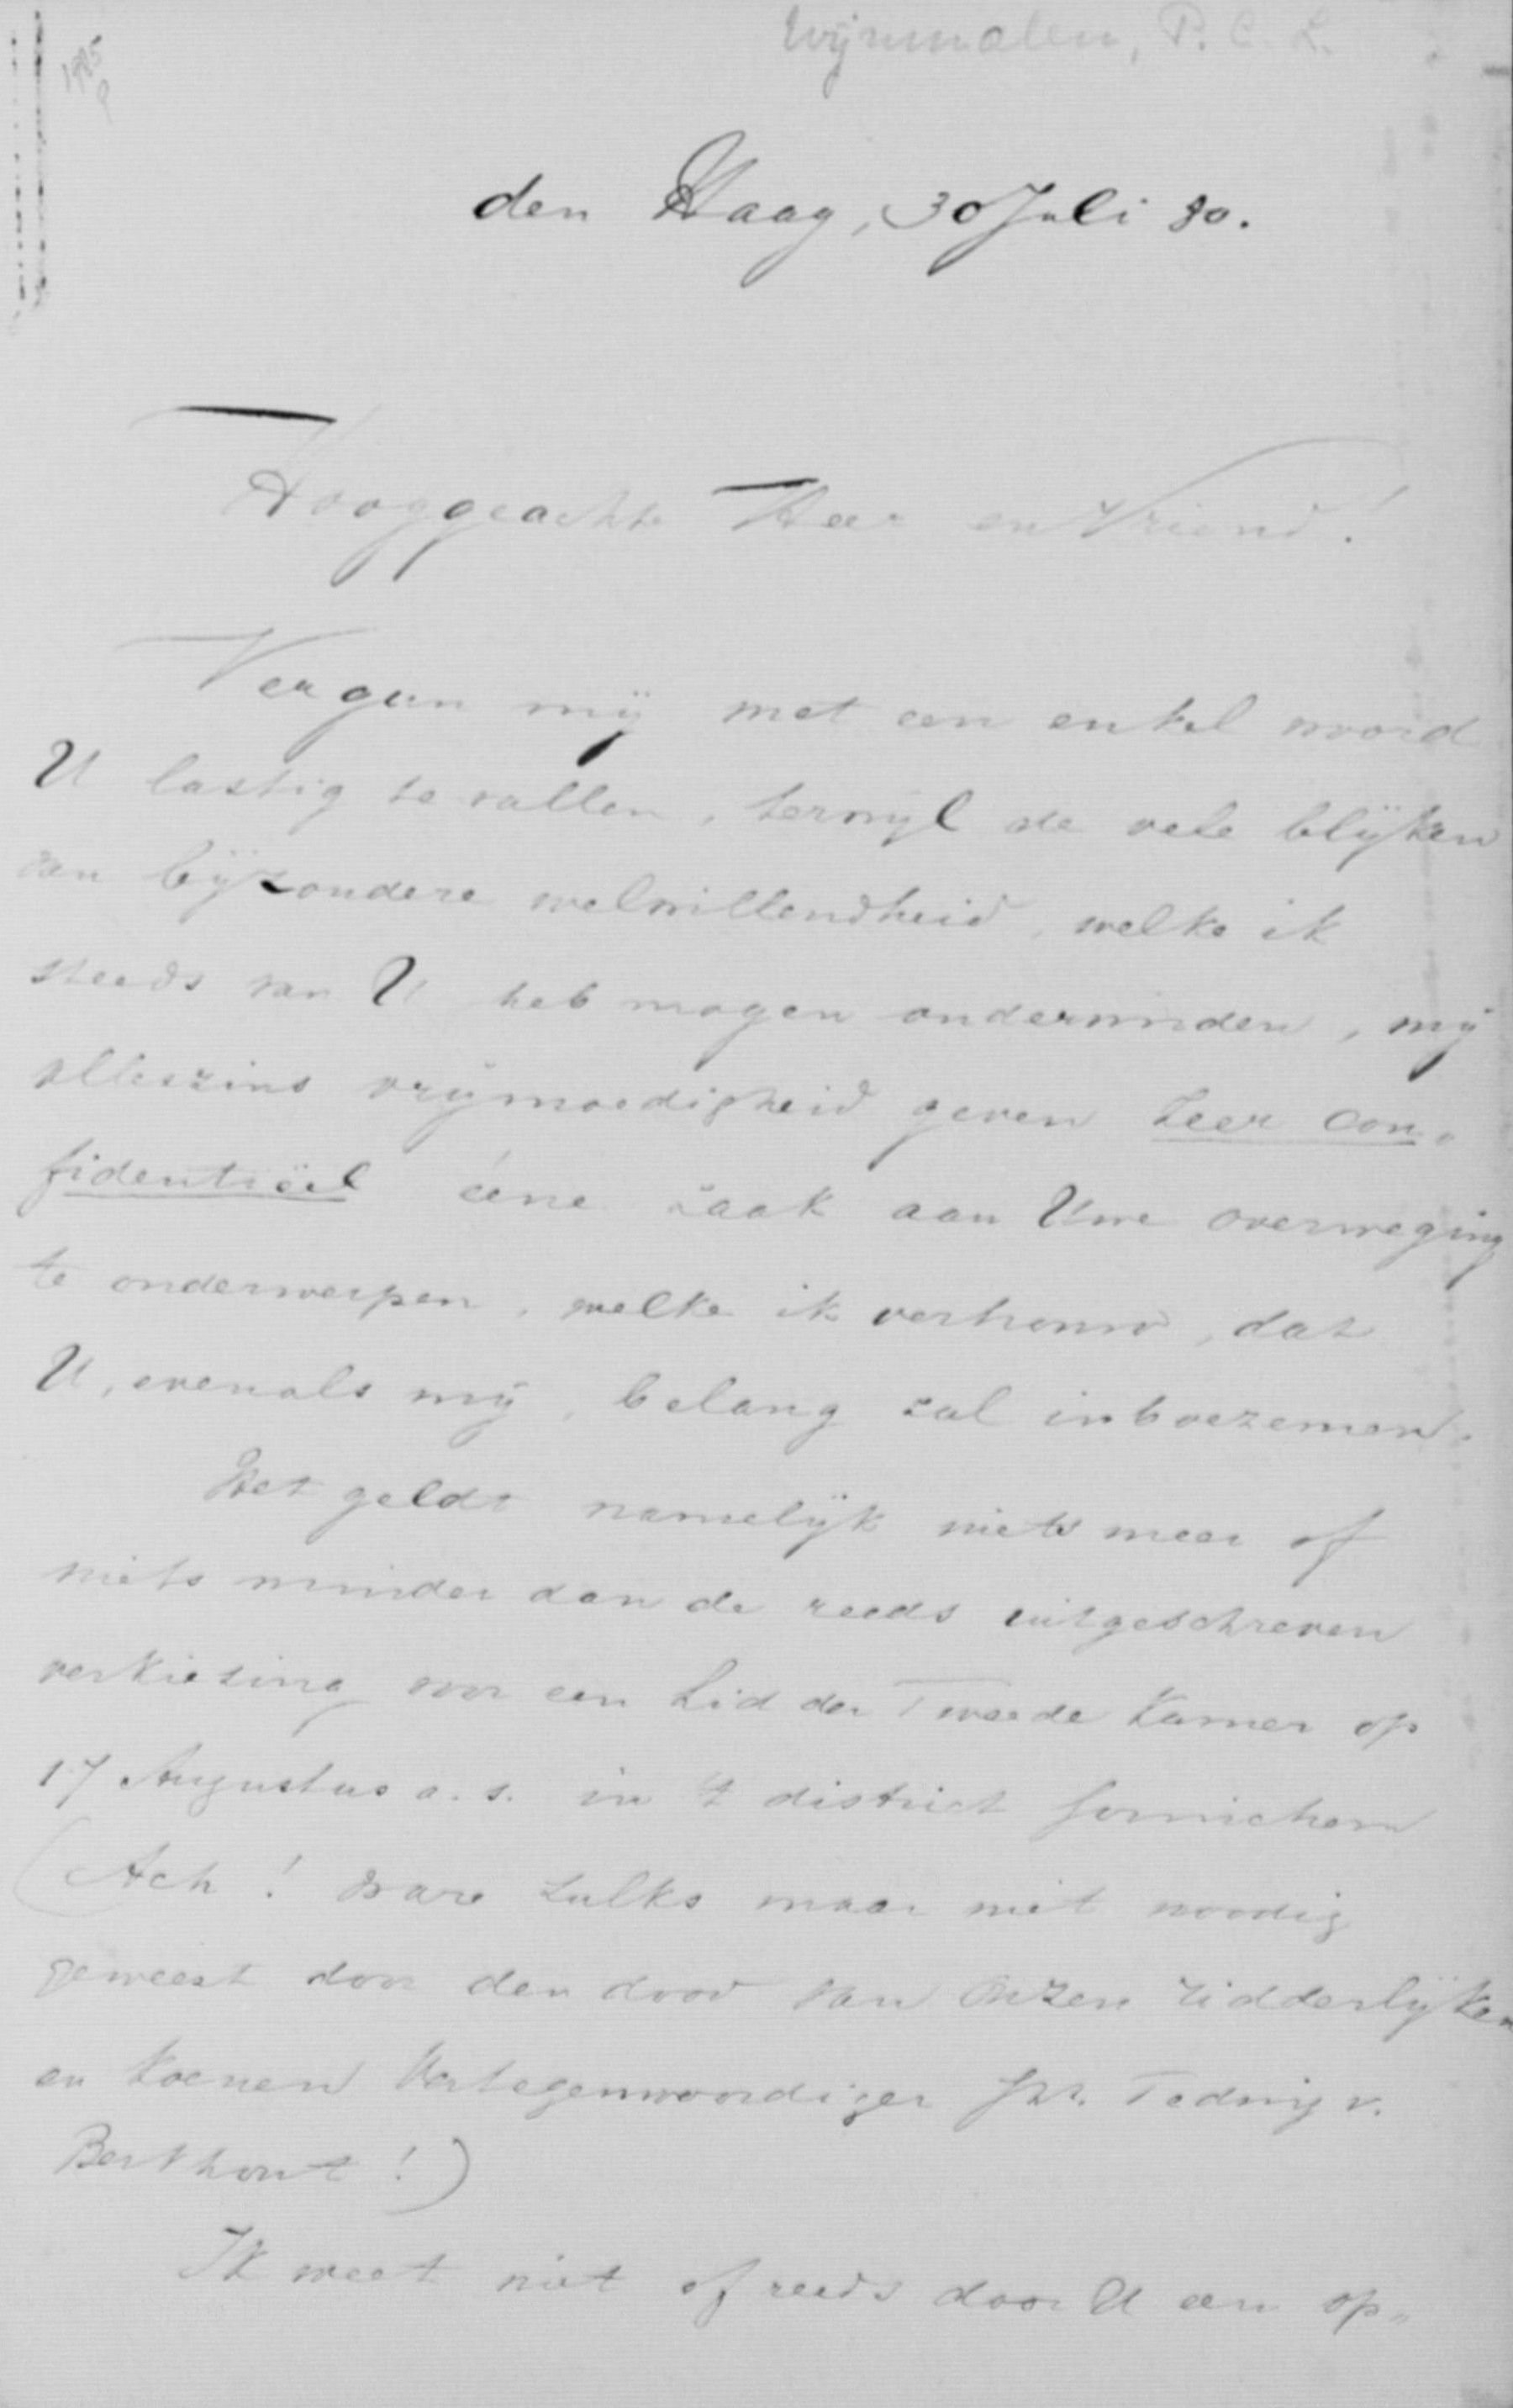 Wijnmalen, P. C. L.
den Haag, 30 Juli 80.
Hooggeachte Heer en Vriend!
Vergun mij met een enkel woord
U lastig te vallen, terwijl de vele blijken
van bijzondere welwillendheid, welke ik
steeds van U heb mogen ondervinden, mij
alleszins vrijmoedigheid geven zeer con„
fidentiëel ééne zaak aan Uwe overweging
te onderwerpen, welke ik vertrouw, dat
U, evenals mij, belang zal inboezemen.
Het geldt namelijk niets meer of
niets minder dan de reeds uitgeschreven
verkiezing voor een Lid der Tweede Kamer op
17 Augustus a. s. in 't district Gorinchem
(Ach! ware zulks maar niet noodig
geweest door den dood van onzen ridderlijken
en koenen Vertegenwoordiger Jhr. Teding v.
Berkhout!)
Ik weet niet of reeds door U een op„